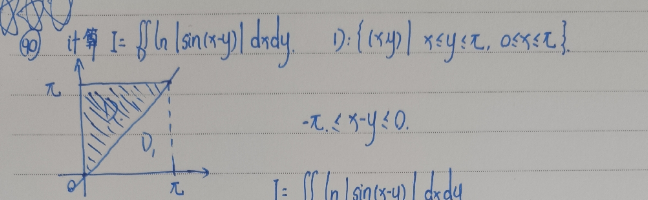 90 计算 I=∬ln|sin(x-y)|dxdy. D:{(x,y)| x≤y≤π, 0≤x≤π}.
π
-π≤x-y≤0.
D₁
0 π
I=∬ln|sin(x-y)|dxdy